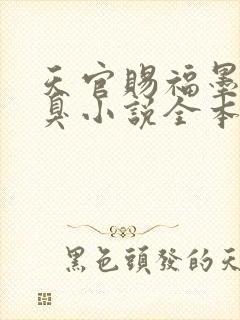 天官賜福墨
真小說全本
黑色頭發的天